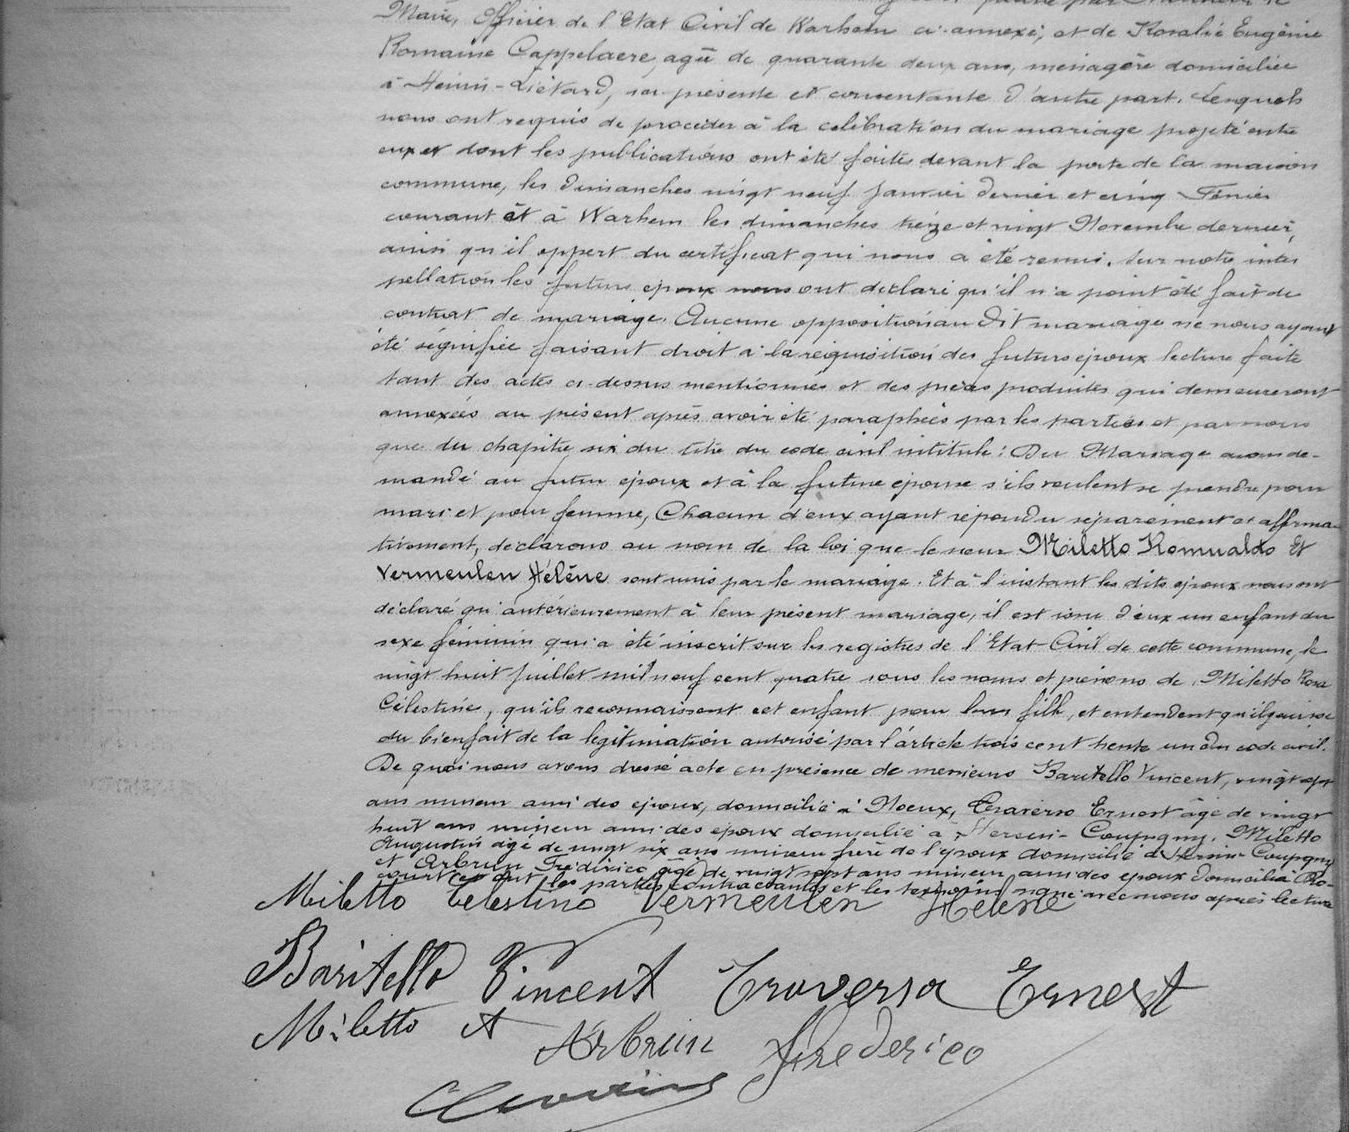 Maire, Officier de l'Etat Civil de Warhem ci-annexé; et de Rosalie Eugénie
Romaine Cappelaere, agée de quarante deux ans, ménagère domiciliée
à Hénin-Liétard, ici présente et consentante d'autre part. Lesquels
nous ont requis de procéder à la célébration du mariage projeté entre
eux et dont les publications ont été faites devant la porte de la maison
commune, les dimanches vingt neuf Janvier dernier et cinq Février
courant et à Warhem les dimanches treize et vingt Novembre dernier,
ainsi qu'il appert du certificat qui nous a été remis. Sur notre inter
pellation les futurs epoux nous ont déclaré qu'il n'a point été fait de
contrat de mariage. Aucune opposition au dit mariage ne nous ayant
été signifiée faisant droit à la réquisition des futurs époux lecture faite
tant des actes ci-dessus mentionnés et des pièces produites qui demeureront
annexées au présent après avoir été paraphées par les parties et par nous
que du chapitre six du titre du code civil intitulé: Du Mariage avons de-
mandé au futur époux et à la future épouse s'ils veulent se prendre pour
mari et pour femme, Chacun d'eux ayant répondu séparément et affirma-
tivement, déclarons au nom de la loi que le sieur Miletto Romualdo Et
Vermeulen Hélène sont unis par le mariage. Et à l'instant les dits époux nous ont
déclaré qu'antérieurement à leur présent mariage, il est issu d'eux un enfant du
sexe féminin qui a été inscrit sur les registres de l'Etat-Civil de cette commune, le
vingt huit Juillet mil neuf cent quatre sous les noms et prénoms de Miletto Rosa
Célestine, qu'ils reconnaissent cet enfant pour leur fille, et entendent qu'il jouisse
du bienfait de la légitimation autorisé par l'article trois cent trente un du code civil.
De quoi nous avons dressé acte en présence de messieurs Baritello Vincent, vingt sept
ans mineur ami des époux, domicilié à Noeux, Craverso Ernest âgé de vingt
huit ans mineur ami des époux domicilié à Hersin-Coupigny, Miletto
Augustin âgé de vingt six ans mineur frère de l'époux domicilié à Hersin-Coupigny
et Arbrun Frédérico âgé de vingt sept ans mineur ami des époux domicilié à
court les parties contractantes et les témoins signé avec nous après lecture
Miletto Celestino Vermeulen Hélène
Baritello Vincent Croversa Ernest
Miletto A Arbrun Frederico